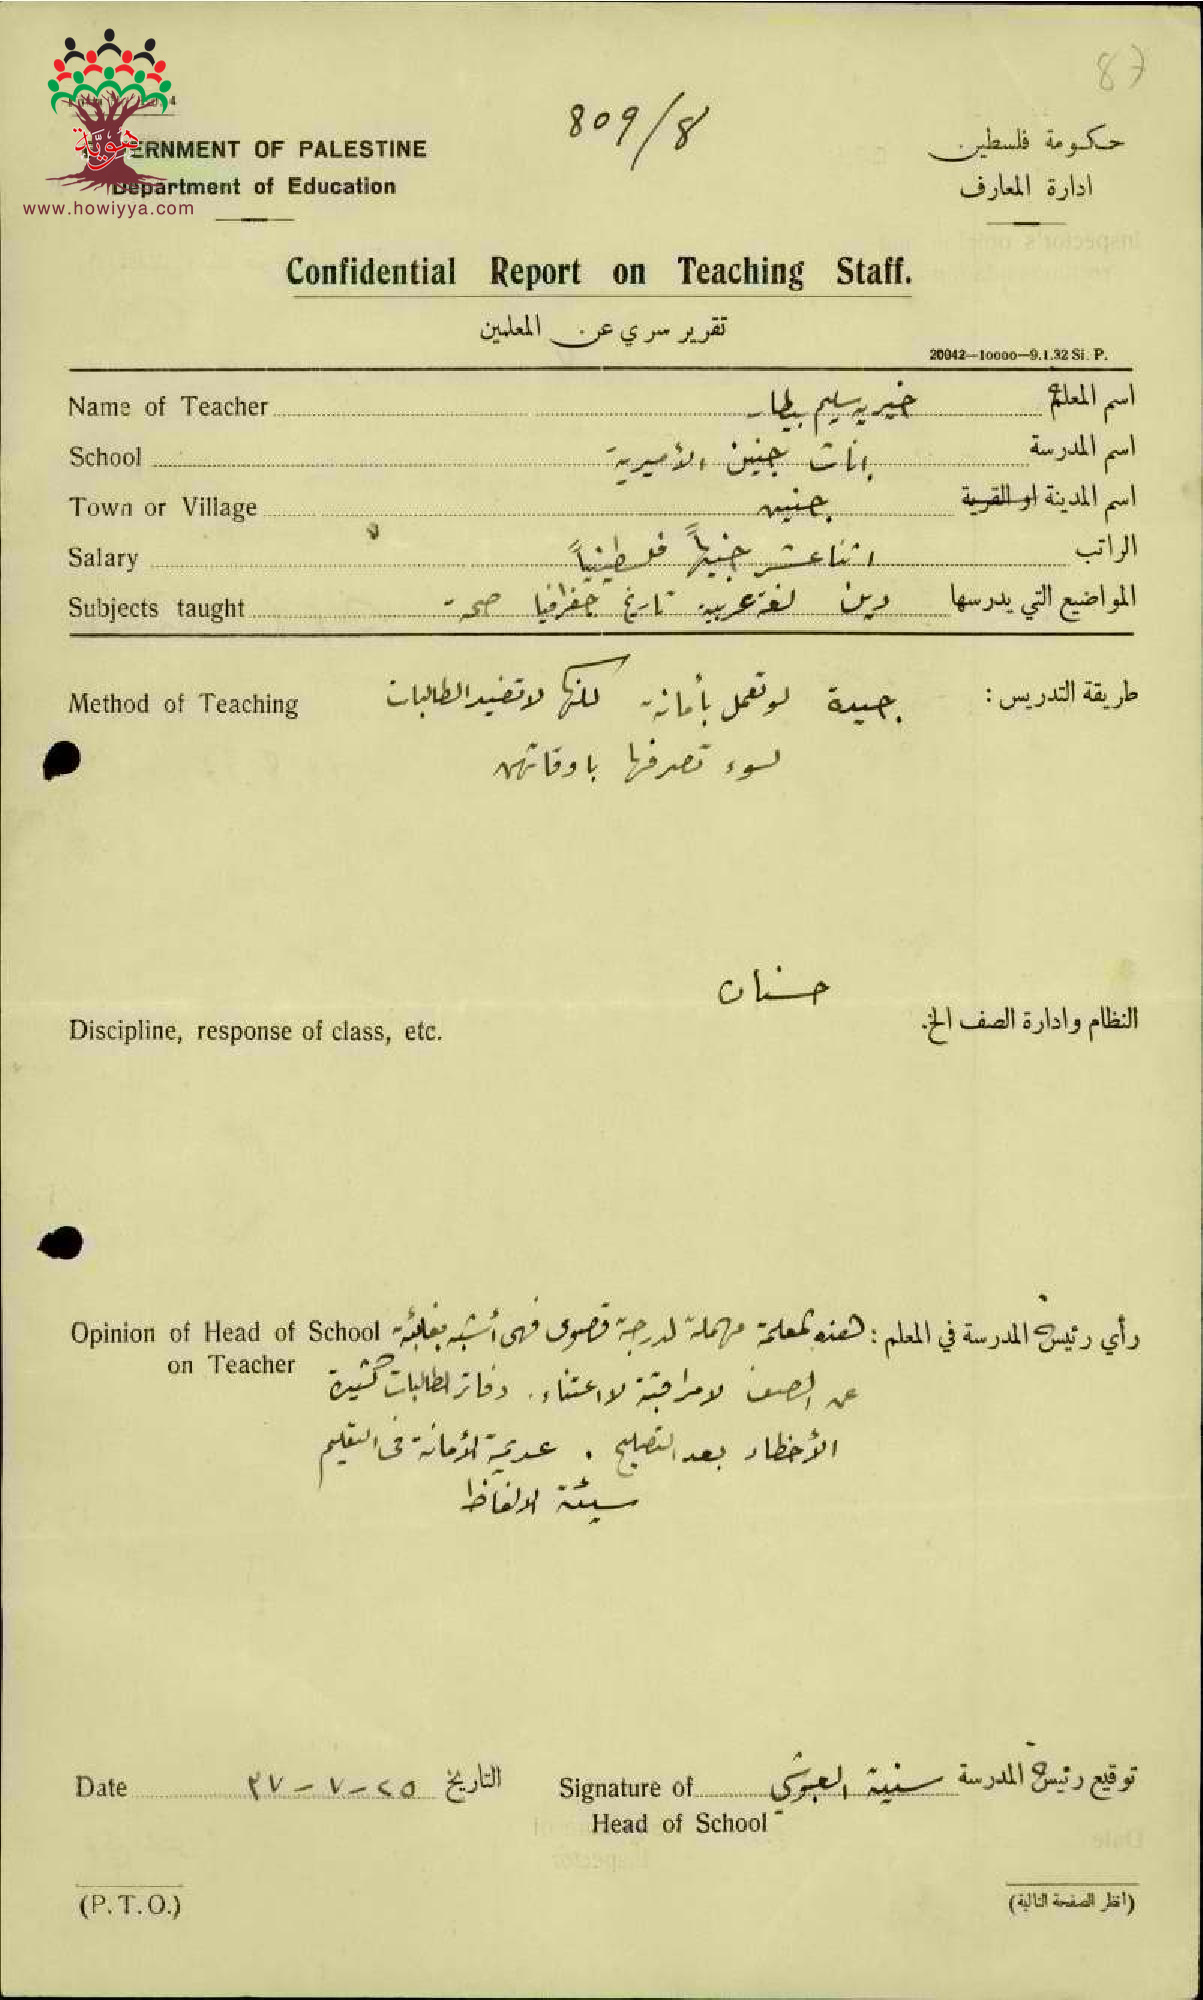 87
809/8
هوية
www.howiyya.com
ERNMENT OF PALESTINE
Department of Education
حكومة فلسطين
ادارة المعارف
Confidential Report on Teaching Staff.
تقرير سري عن المعلمين
20042—10000—9.1.32 Si. P.
Name of Teacher خيريه سليم بيطار اسم المعلمة
School اناث جنين الأميرية اسم المدرسة
Town or Village جنين اسم المدينة او القرية
Salary اثنا عشر جنيهاً فلسطينياً الراتب
Subjects taught دين لغة عربية تاريخ جغرافيا صحة المواضيع التي يدرسها
Method of Teaching جيدة لو تعمل بأمانة لكنها لا تفيد الطالبات طريقة التدريس :
لسوء تصرفها باوقاتهن
حسنان
Discipline, response of class, etc. النظام وادارة الصف الخ.
Opinion of Head of School رأي رئيسة المدرسة في المعلم : هذه المعلمة مهملة لدرجة قصوى فهي أشبه بغائبة
on Teacher عن الصف لا مراقبة لا اعتناء. دفاتر الطالبات كثيرة
الأخطاء بعد التصليح . عديمة الأمانة في التعليم
سيئة الالفاظ
Date ٢٥-٧-٣٧ التاريخ
Signature of سنية العبوشي توقيع رئيسة المدرسة
Head of School
(P.T.O.) (انظر الصفحة التالية)